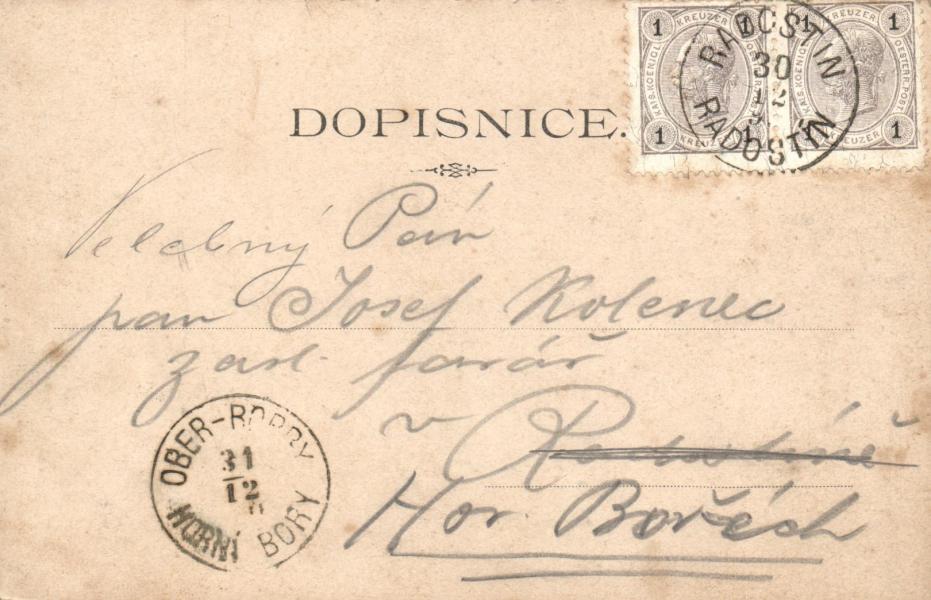 1 KREUZER 1 1 KREUZER 1
KAIS. KOENIGL. OESTERR. POST. KAIS. KOENIGL. OESTERR. POST.
1 KREUZER 1 1 KREUZER 1
RADOSTIN
30
12
RADOSTÍN
DOPISNICE.
Velebný Pán
pan Josef Kolenec
zasl. farář
v Radostíně
Hor. Bořéch
OBER-BORRY
31
12
HORNÍ BORY